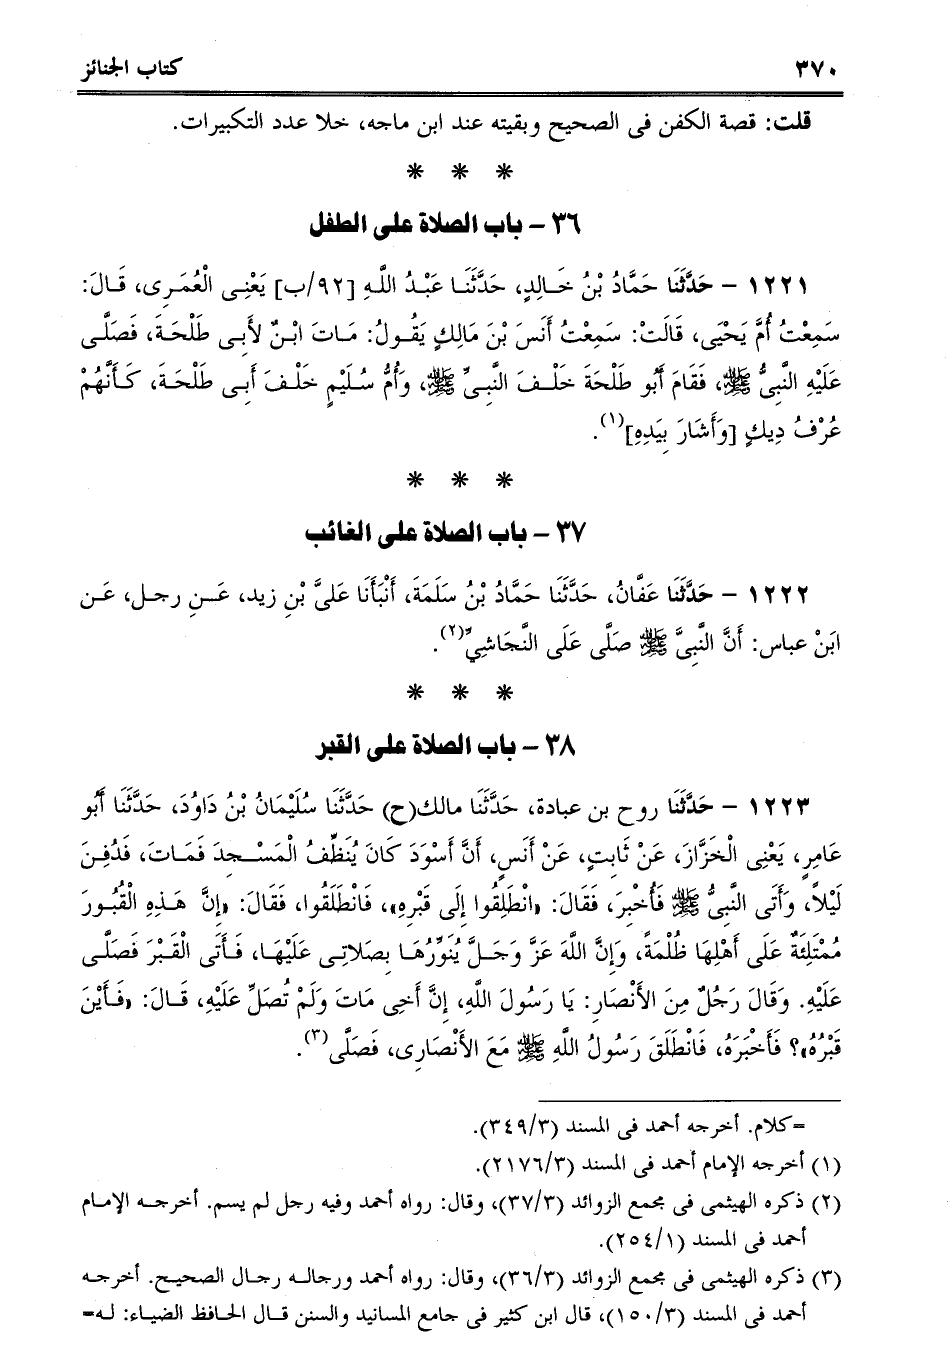 ٣٧٠ كتاب الجنائز
قلت: قصة الكفن فى الصحيح وبقيته عند ابن ماجه، خلا عدد التكبيرات.
* * *
٣٦ – باب الصلاة على الطفل
١٢٢١ – حَدَّثَنَا حَمَّادُ بْنُ خَالِدٍ، حَدَّثَنَا عَبْدُ اللَّهِ [٩٢/ب] يَعْنِى الْعُمَرِى، قَالَ:
سَمِعْتُ أُمَّ يَحْيَى، قَالَتْ: سَمِعْتُ أَنَسَ بْنَ مَالِكٍ يَقُولُ: مَاتَ ابْنٌ لأَبِى طَلْحَةَ، فَصَلَّى
عَلَيْهِ النَّبِىُّ ﷺ، فَقَامَ أَبُو طَلْحَةَ خَلْفَ النَّبِىِّ ﷺ، وَأُمُّ سُلَيْمٍ خَلْفَ أَبِى طَلْحَةَ، كَأَنَّهُمْ
عُرْفُ دِيكٍ [وَأَشَارَ بِيَدِهِ](١).
* * *
٣٧ – باب الصلاة على الغائب
١٢٢٢ – حَدَّثَنَا عَفَّانُ، حَدَّثَنَا حَمَّادُ بْنُ سَلَمَةَ، أَنْبَأَنَا عَلىَّ بْنِ زيد، عَنِ رجل، عَن
ابَنْ عباس: أَنَّ النَّبِىَّ ﷺ صَلَّى عَلَى النَّجَاشِىِّ(٢).
* * *
٣٨ – باب الصلاة على القبر
١٢٢٣ – حَدَّثَنَا روح بن عبادة، حَدَّثَنَا مالك(ح) حَدَّثَنَا سُلَيْمَانُ بْنُ دَاوُدَ، حَدَّثَنَا أَبُو
عَامِرٍ، يَعْنِى الْخَزَّازَ، عَنْ ثَابِتٍ، عَنْ أَنَسٍ، أَنَّ أَسْوَدَ كَانَ يُنَظِّفُ الْمَسْجِدَ فَمَاتَ، فَدُفِنَ
لَيْلاً، وَأَتَى النَّبِىُّ ﷺ فَأُخْبِرَ، فَقَالَ: «انْطَلِقُوا إِلَى قَبْرِهِ»، فَانْطَلَقُوا، فَقَالَ: «إِنَّ هَذِهِ الْقُبُورَ
مُمْتَلِئَةٌ عَلَى أَهْلِهَا ظُلْمَةً، وَإِنَّ اللَّهَ عَزَّ وَجَلَّ يُنَوِّرُهَا بِصَلاتِى عَلَيْهَا، فَأَتَى الْقَبْرَ فَصَلَّى
عَلَيْهِ. وَقَالَ رَجُلٌ مِنَ الأَنْصَارِ: يَا رَسُولَ اللَّهِ، إِنَّ أَخِى مَاتَ وَلَمْ تُصَلِّ عَلَيْهِ، قَالَ: «فَأَيْنَ
قَبْرُهُ»؟ فَأَخْبَرَهُ، فَانْطَلَقَ رَسُولُ اللَّهِ ﷺ مَعَ الأَنْصَارِى، فَصَلَّى(٣).
=كلام. أخرجه أحمد فى المسند (٣٤٩/٣).
(١) أخرجه الإمام أحمد فى المسند (٢١٧٦/٣).
(٢) ذكره الهيثمى فى مجمع الزوائد (٣٧/٣)، وقال: رواه أحمد وفيه رجل لم يسم. أخرجه الإمام
أحمد فى المسند (٢٥٤/١).
(٣) ذكره الهيثمى فى مجمع الزوائد (٣٦/٣)، وقال: رواه أحمد ورجاله رجال الصحيح. أخرجه
أحمد فى المسند (١٥٠/٣)، قال ابن كثير فى جامع المسانيد والسنن قال الحافظ الضياء: له=